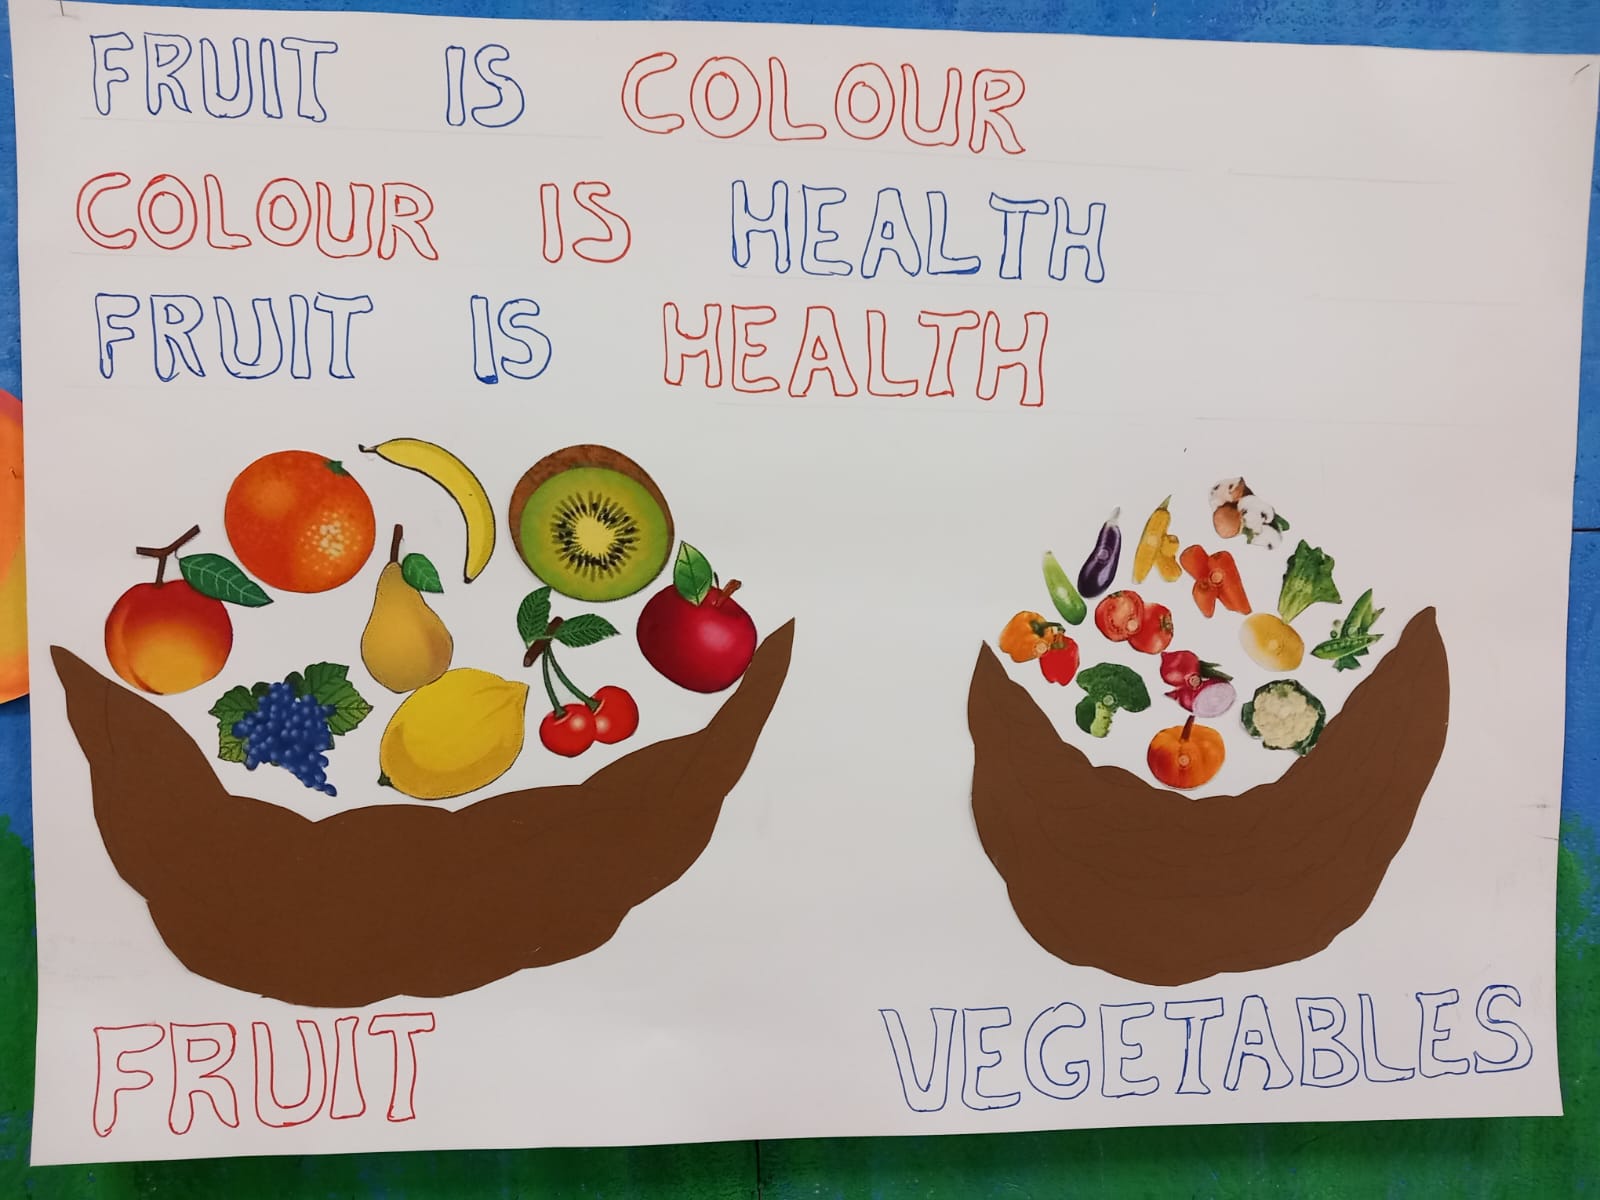 FRUIT IS COLOUR
COLOUR IS HEALTH
FRUIT IS HEALTH
FRUIT
VEGETABLES